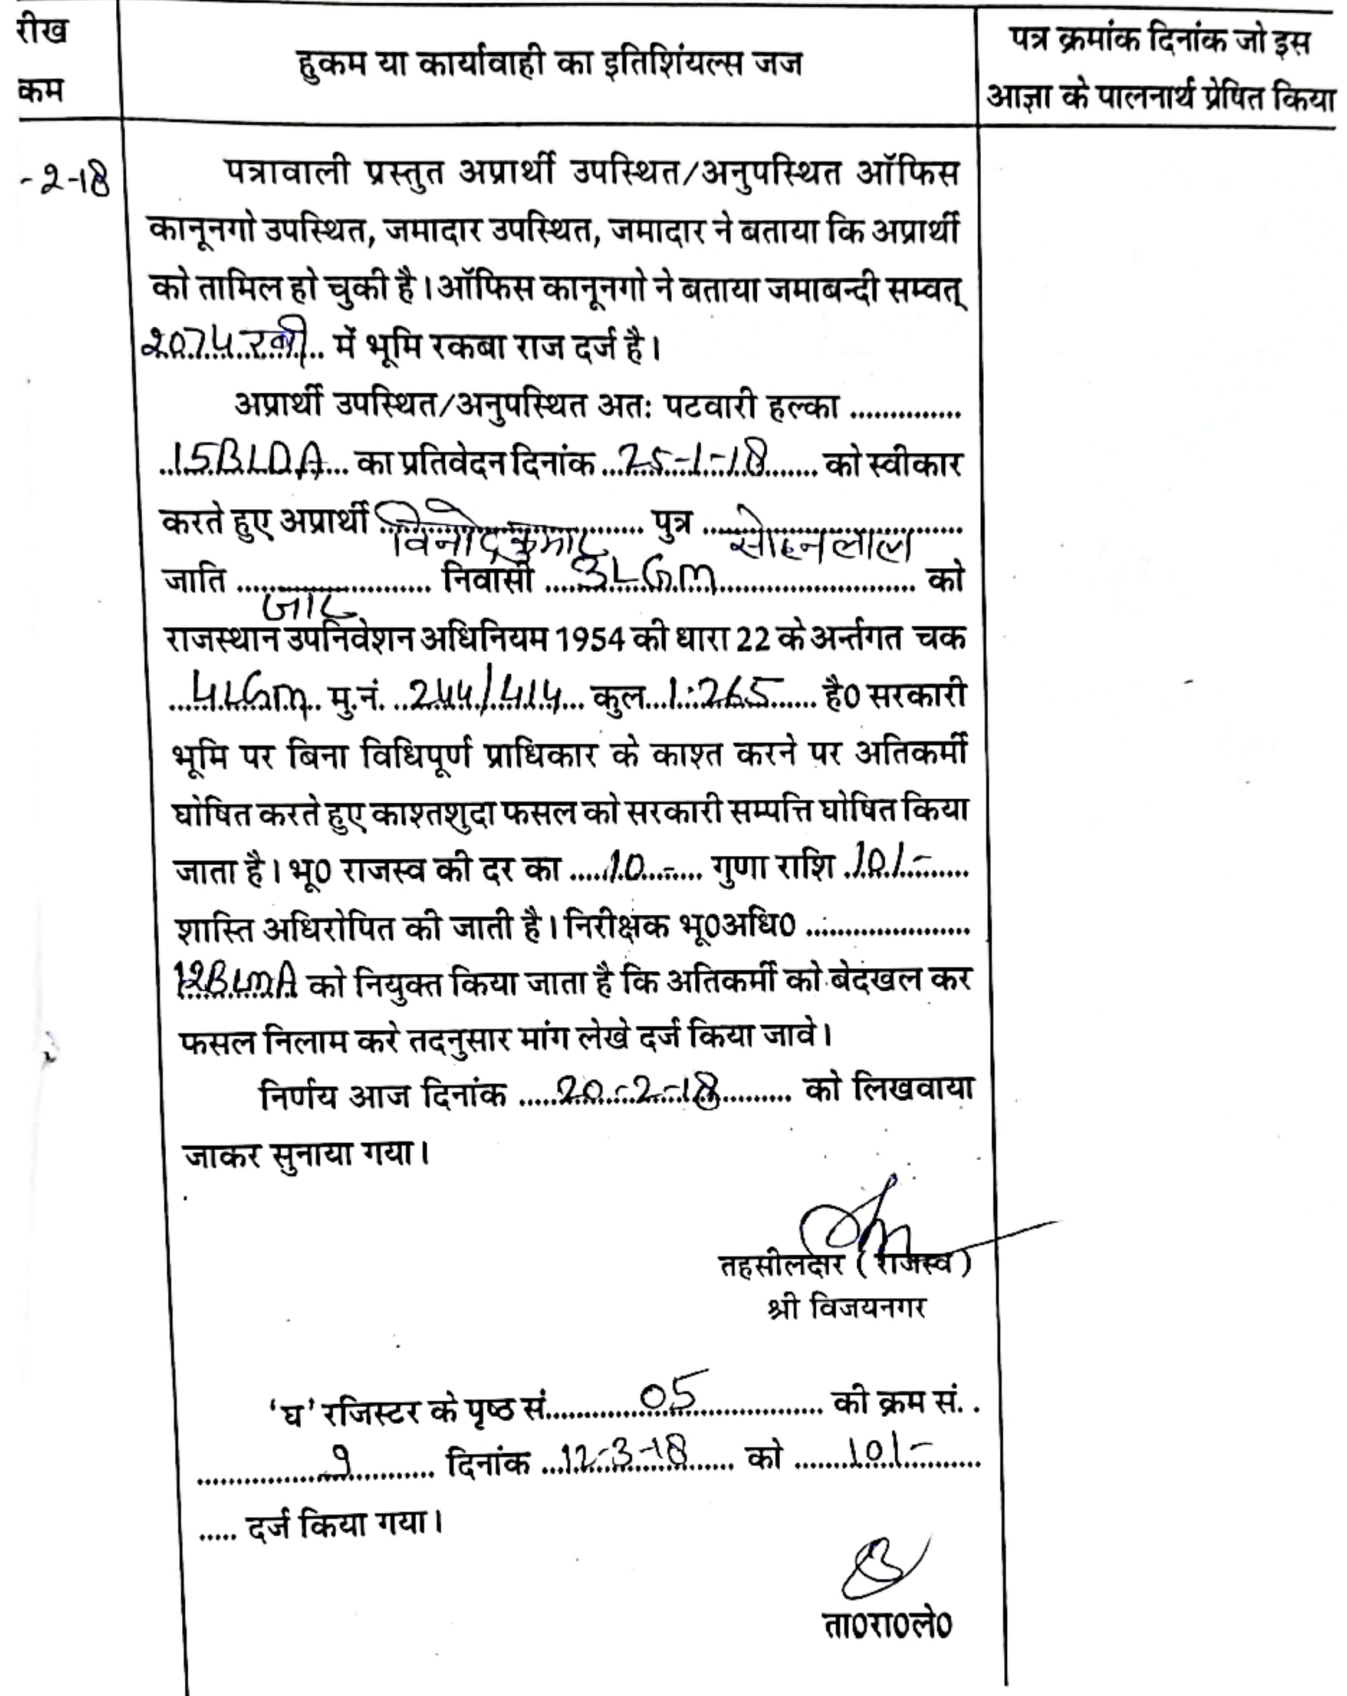 रीख
कम
हुकम या कार्यवाही का इतिशिंयल्स जज
पत्र क्रमांक दिनांक जो इस
आज्ञा के पालनार्थ प्रेषित किया
-2-18
पत्रावाली प्रस्तुत अप्रार्थी उपस्थित/अनुपस्थित ऑफिस
कानूनगो उपस्थित, जमादार उपस्थित, जमादार ने बताया कि अप्रार्थी
को तामिल हो चुकी है। ऑफिस कानूनगो ने बताया जमाबन्दी सम्वत्
2074 रबी में भूमि रकबा राज दर्ज है।
अप्रार्थी उपस्थित/अनुपस्थित अतः पटवारी हल्का ..............
15BLDA का प्रतिवेदन दिनांक 25-1-18 को स्वीकार
करते हुए अप्रार्थी विनोद कुमार पुत्र सोहनलाल
जाति जाट निवासी 3LGM को
राजस्थान उपनिवेशन अधिनियम 1954 की धारा 22 के अर्न्तगत चक
4LGM मु.नं. 244/414 कुल 1.265 है0 सरकारी
भूमि पर बिना विधिपूर्ण प्राधिकार के काश्त करने पर अतिकर्मी
घोषित करते हुए काश्तशुदा फसल को सरकारी सम्पत्ति घोषित किया
जाता है। भू0 राजस्व की दर का 10 - गुणा राशि 101-
शास्ति अधिरोपित की जाती है। निरीक्षक भू0अधि0 .....................
12BLMA को नियुक्त किया जाता है कि अतिकर्मी को बेदखल कर
फसल निलाम करे तदनुसार मांग लेखे दर्ज किया जावे।
निर्णय आज दिनांक 20-2-18 को लिखवाया
जाकर सुनाया गया।
तहसीलदार (राजस्व)
श्री विजयनगर
'घ' रजिस्टर के पृष्ठ सं. 05 की क्रम सं. .
9 दिनांक 12-3-18 को 101-
..... दर्ज किया गया।
ता0रा0ले0